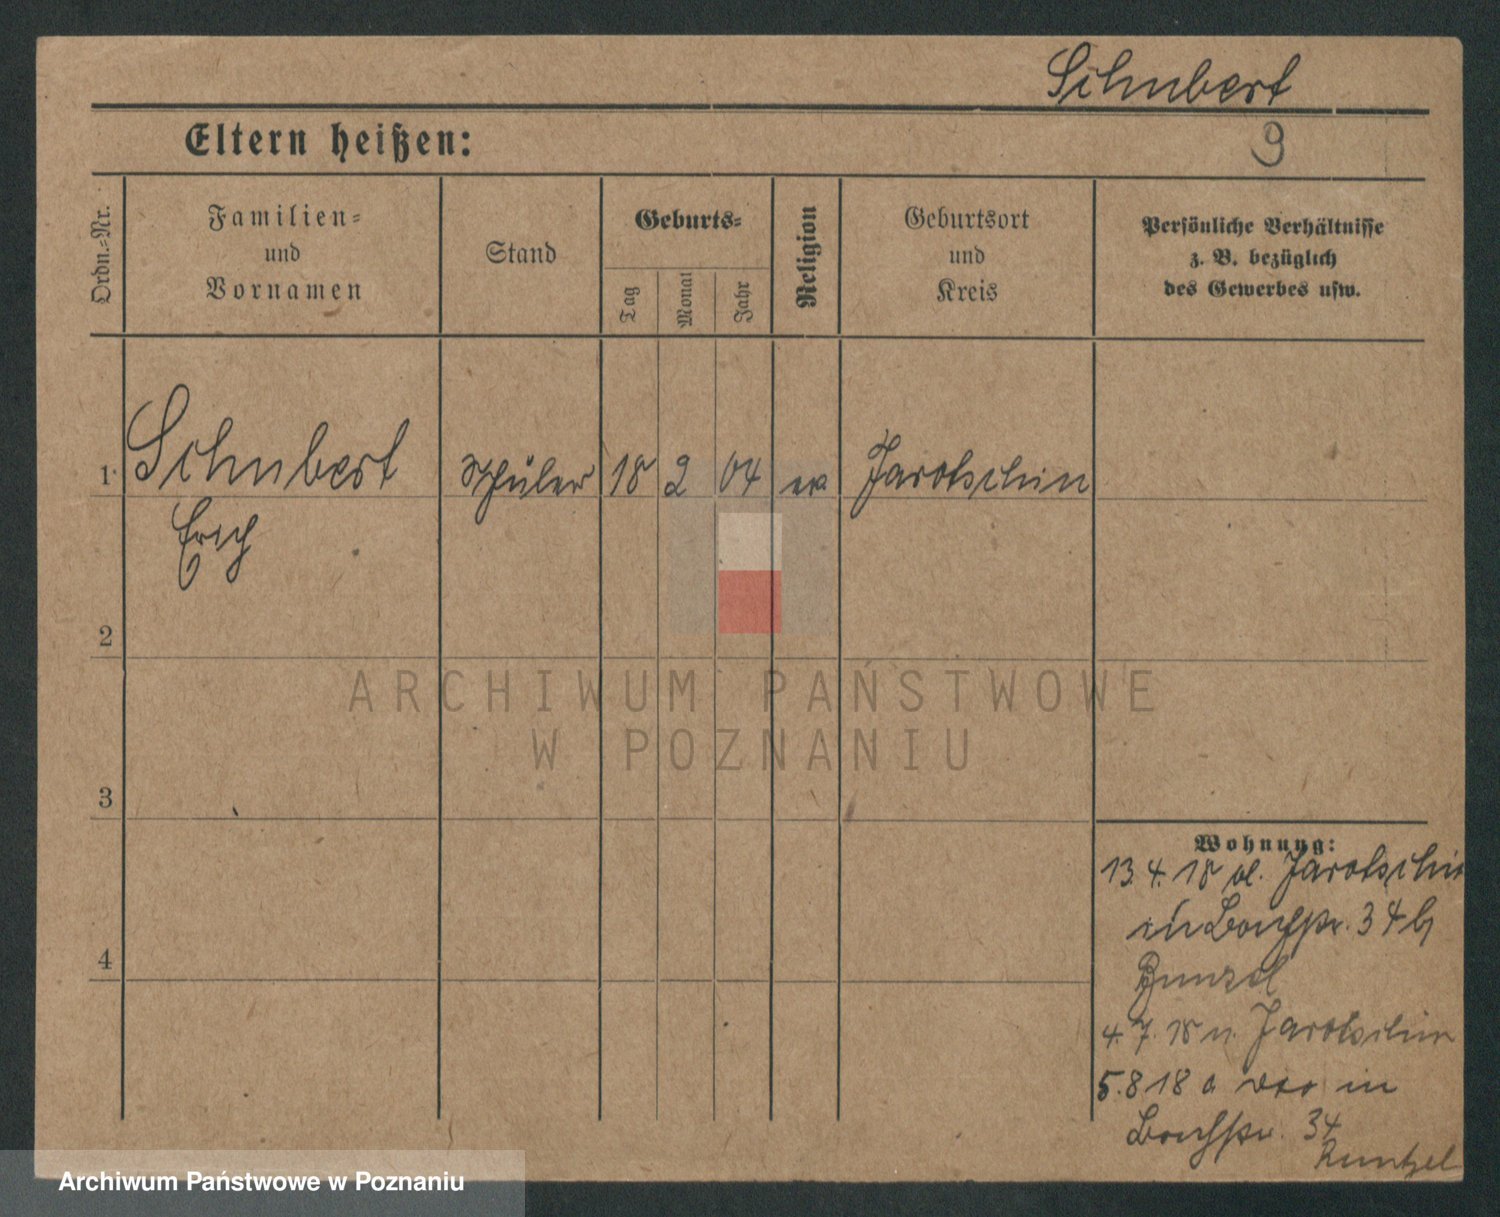 Schubert
9
Eltern heißen:
Ordn.-Nr.
Familien-
und
Vornamen
Stand
Geburts-
Tag
Monat
Jahr
Religion
Geburtsort
und
Kreis
Persönliche Verhältnisse
z. B. bezüglich
des Gewerbes usw.
1 Schubert Schüler 18 2 04 ev Jarotschin
Erich
2
3
4
Wohnung:
13.4.18 v. Jarotschin
in 34 b
4.7.18 n. Jarotschin
5.8.18 a in
34
Runtzel
ARCHIWUM PAŃSTWOWE
W POZNANIU
Archiwum Państwowe w Poznaniu